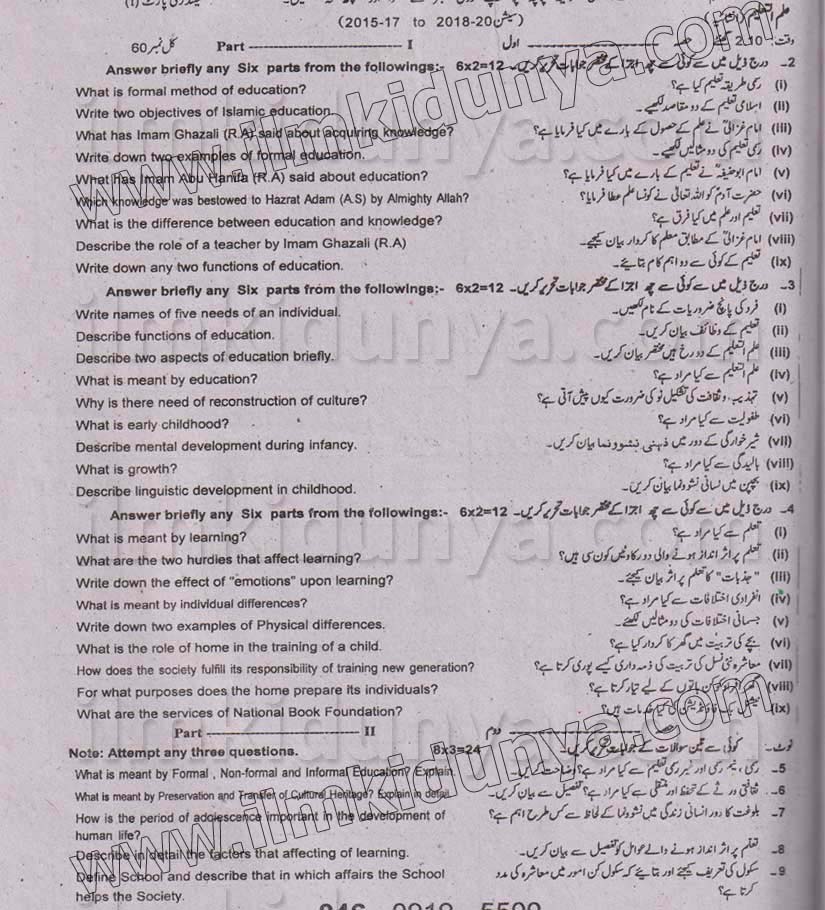 علم التعلیم
(سیشن 2015-17 to 2018-20)
کل نمبر 60 Part ---------------- I حصہ اول وقت: 2.10 گھنٹے
Answer briefly any Six parts from the followings:- 6x2=12 2۔ درج ذیل میں سے کوئی سے چھ اجزا کے مختصر جوابات تحریر کریں۔
What is formal method of education? (i) رسمی طریقہ تعلیم کیا ہے؟
Write two objectives of Islamic education. (ii) اسلامی تعلیم کے دو مقاصد لکھیے۔
What has Imam Ghazali (R.A) said about acquiring knowledge? (iii) امام غزالیؒ نے علم کے حصول کے بارے میں کیا فرمایا ہے؟
Write down two examples of formal education. (iv) رسمی تعلیم کی دو مثالیں لکھیے۔
What has Imam Abu Hanifa (R.A) said about education? (v) امام ابو حنیفہؒ نے تعلیم کے بارے میں کیا فرمایا ہے؟
Which knowledge was bestowed to Hazrat Adam (A.S) by Almighty Allah? (vi) حضرت آدمؑ کو اللہ تعالیٰ نے کونسا علم عطا فرمایا؟
What is the difference between education and knowledge? (vii) تعلیم اور علم میں کیا فرق ہے؟
Describe the role of a teacher by Imam Ghazali (R.A) (viii) امام غزالیؒ کے مطابق معلم کا کردار بیان کیجیے۔
Write down any two functions of education. (ix) تعلیم کے کوئی سے دو اہم کام بتایئے۔
Answer briefly any Six parts from the followings:- 6x2=12 3۔ درج ذیل میں سے کوئی سے چھ اجزا کے مختصر جوابات تحریر کریں۔
Write names of five needs of an individual. (i) فرد کی پانچ ضروریات کے نام لکھیں۔
Describe functions of education. (ii) تعلیم کے وظائف بیان کریں۔
Describe two aspects of education briefly. (iii) علم التعلیم کے دو رخ ہیں مختصر بیان کریں۔
What is meant by education? (iv) علم التعلیم سے کیا مراد ہے؟
Why is there need of reconstruction of culture? (v) تہذیب و ثقافت کی تشکیل نو کی ضرورت کیوں پیش آتی ہے؟
What is early childhood? (vi) طفولیت سے کیا مراد ہے؟
Describe mental development during infancy. (vii) شیر خوارگی کے دور میں ذہنی نشوونما بیان کریں۔
What is growth? (viii) بالیدگی سے کیا مراد ہے؟
Describe linguistic development in childhood. (ix) بچپن میں لسانی نشوونما بیان کریں۔
Answer briefly any Six parts from the followings:- 6x2=12 4۔ درج ذیل میں سے کوئی سے چھ اجزا کے مختصر جوابات تحریر کریں۔
What is meant by learning? (i) تعلم سے کیا مراد ہے؟
What are the two hurdles that affect learning? (ii) تعلم پر اثر انداز ہونے والی دو رکاوٹیں کون سی ہیں؟
Write down the effect of "emotions" upon learning? (iii) "جذبات" کا تعلم پر اثر بیان کیجئے۔
What is meant by individual differences? (iv) انفرادی اختلافات سے کیا مراد ہے؟
Write down two examples of Physical differences. (v) جسمانی اختلافات کی دو مثالیں لکھئے۔
What is the role of home in the training of a child. (vi) بچے کی تربیت میں گھر کا کردار کیا ہے؟
How does the society fulfill its responsibility of training new generation? (vii) معاشرہ نئی نسل کی تربیت کی ذمہ داری کیسے پوری کرتا ہے؟
For what purposes does the home prepare its individuals? (viii) گھر افراد کو کن باتوں کے لیے تیار کرتا ہے؟
What are the services of National Book Foundation? (ix) نیشنل بک فاؤنڈیشن کی کیا خدمات ہیں؟
Part ---------------- II حصہ دوم
Note: Attempt any three questions. 8x3=24 نوٹ۔ کوئی سے تین سوالات کے جوابات تحریر کریں۔
What is meant by Formal , Non-formal and Informal Education? Explain. 5۔ رسمی، نیم رسمی اور غیر رسمی تعلیم سے کیا مراد ہے؟ وضاحت کریں۔
What is meant by Preservation and Transfer of Cultural Heritage? Explain in detail. 6۔ ثقافتی ورثے کے تحفظ اور منتقلی سے کیا مراد ہے؟ تفصیل سے بیان کریں۔
How is the period of adolescence important in the development of 7۔ بلوغت کا دور انسانی زندگی میں نشوونما کے لحاظ سے کس طرح اہم ہے؟
human life?
Describe in detail the factors that affecting of learning. 8۔ تعلم پر اثر انداز ہونے والے عوامل کو تفصیل سے بیان کریں۔
Define School and describe that in which affairs the School 9۔ سکول کی تعریف کیجئے اور بتایئے کہ سکول کن امور میں معاشرہ کی مدد
helps the Society. کرتا ہے؟
www.ilmkidunya.com